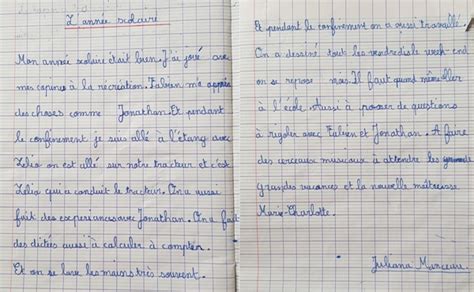 L'année scolaire
Mon année scolaire était bien. J'ai joué avec
mes copines à la récréation. Fabien m'a appris
des choses comme Jonathan. Et pendant
le confinement je suis allé à l'étang avec
Lélia on est allé sur notre tracteur et c'est
Lélia qui a conduit le tracteur. On a aussi
fait des experiances avec Jonathan. On a fait
des dictées aussi à calculer à compter.
Et on se lave les mains très souvent.
Et pendant le confinement on a aussi travaillé.
On a dessiné tout les vendredis le week-end
on se repose mais. Il faut quand même aller
à l'école. Aussi à posser de questions
à rigoler avec Fabien et Jonathan. A faire
des cerceaux musicaux à attendre les
grandes vacances et la nouvelle maîtresse
Marie-Charlotte.
Juliana Manceau